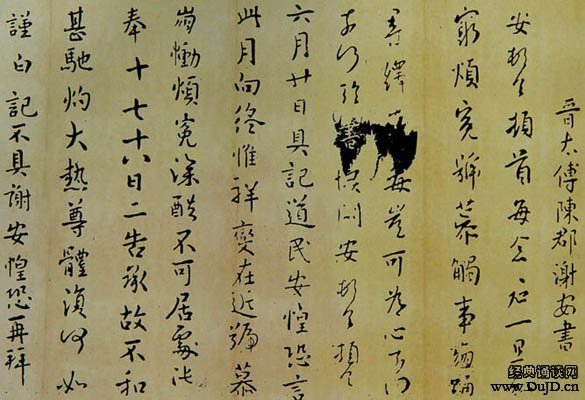 晋太傅陳郡謝安書
安頓首頓首每念君一旦
窮煩冤號慕觸事崩踊
尋繹毒豈可為心奈何
奈何臨書悽悶安頓首頓首
六月廿日具記道民安惶恐言
此月向終惟祥變在近號慕
崩慟煩冤深酷不可居處比
奉十七十八日二告承故不和
甚馳灼大熱尊體復何如
謹白記不具謝安惶恐再拜
经典诵读网
www.DuJD.cn